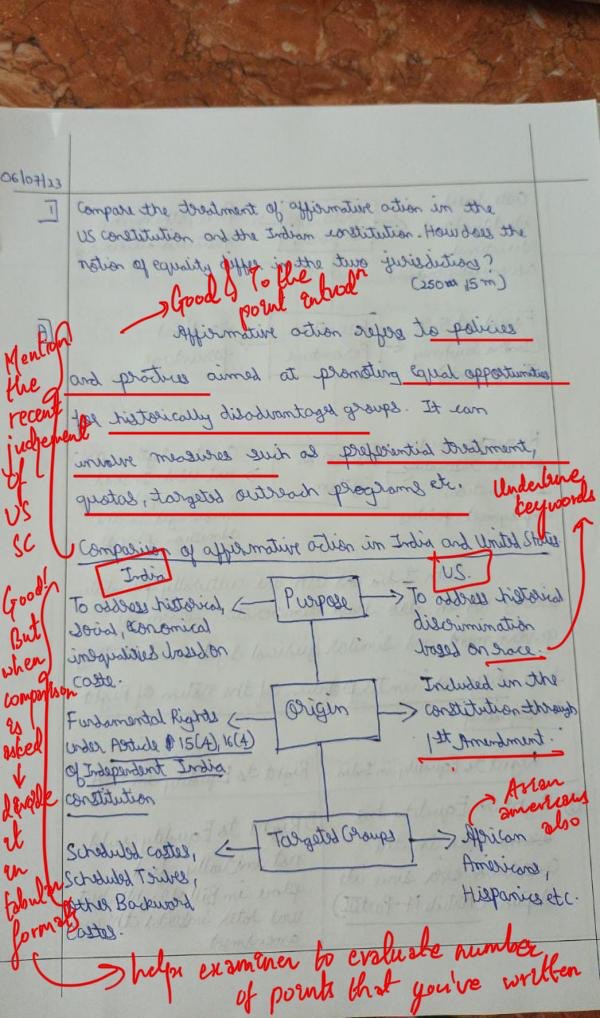 06/07/23
1] Compare the treatment of affirmative action in the
US constitution and the Indian constitution. How does the
notion of equality differ in the two jurisdictions?
(250 15m)
Good & To the
point introdn
A] Affirmative action refers to policies
and practices aimed at promoting equal opportunities
for historically disadvantaged groups. It can
involve measures such as preferential treatment,
quotas, targeted outreach programs etc.
Mention
the
recent
judgement
of
US
SC
Underline
keywords
Comparison of affirmative action in India and United States
India
U.S.
Purpose
To address historical,
social, economical
inequalities based on
caste.
To address historical
discrimination
based on race.
Origin
Fundamental Rights
under Article 15(4), 16(4)
of Independent India
constitution
Included in the
constitution through
1st Amendment.
Targeted Groups
Scheduled castes,
Scheduled Tribes,
Other Backward
Castes.
African
Americans,
Hispanics etc.
Asian
americans
also
Good!
But
when
comparison
is
asked
↓
divide
it
in
tabular
format
helps examiner to evaluate number
of points that you've written